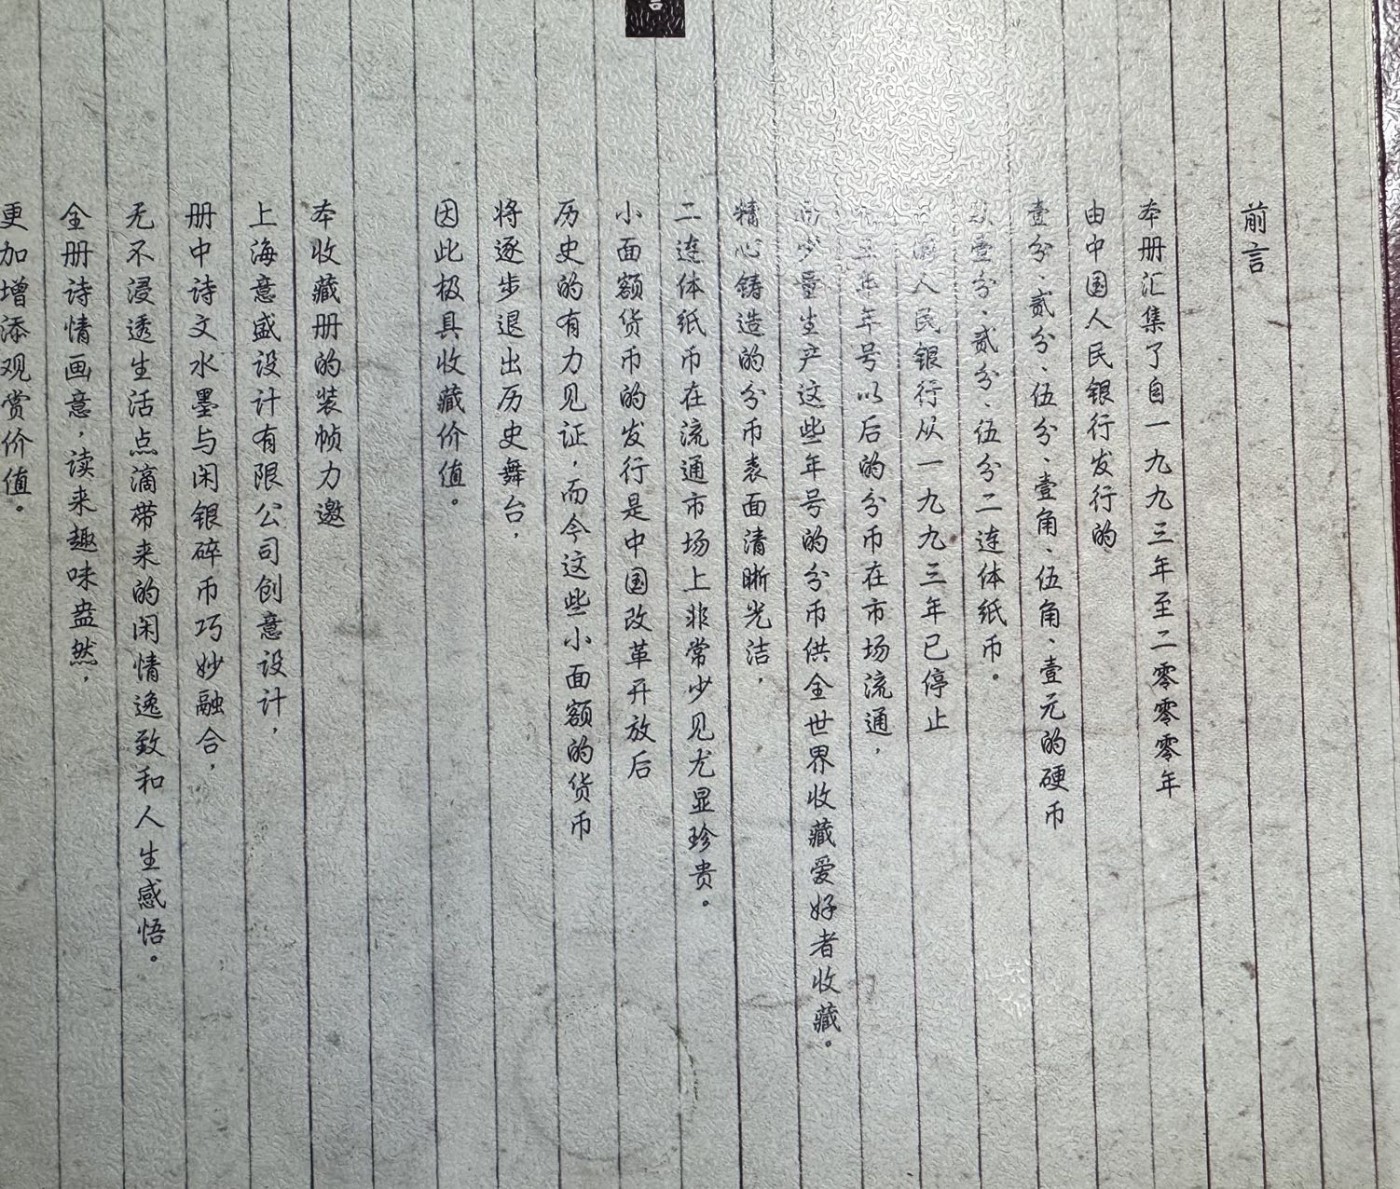 前言
本册汇集了自一九九三年至二零零零年
由中国人民银行发行的
壹分、贰分、伍分、壹角、伍角、壹元的硬币
及壹分、贰分、伍分二连体纸币。
人民银行从一九九三年已停止
年号以后的分币在市场流通，
而少量生产这些年号的分币供全世界收藏爱好者收藏。
精心铸造的分币表面清晰光洁，
二连体纸币在流通市场上非常少见尤显珍贵。
小面额货币的发行是中国改革开放后
历史的有力见证，而今这些小面额的货币
将逐步退出历史舞台，
因此极具收藏价值。
本收藏册的装帧力邀
上海意盛设计有限公司创意设计，
册中诗文水墨与闲银碎币巧妙融合，
无不浸透生活点滴带来的闲情逸致和人生感悟。
全册诗情画意，读来趣味盎然，
更加增添观赏价值。